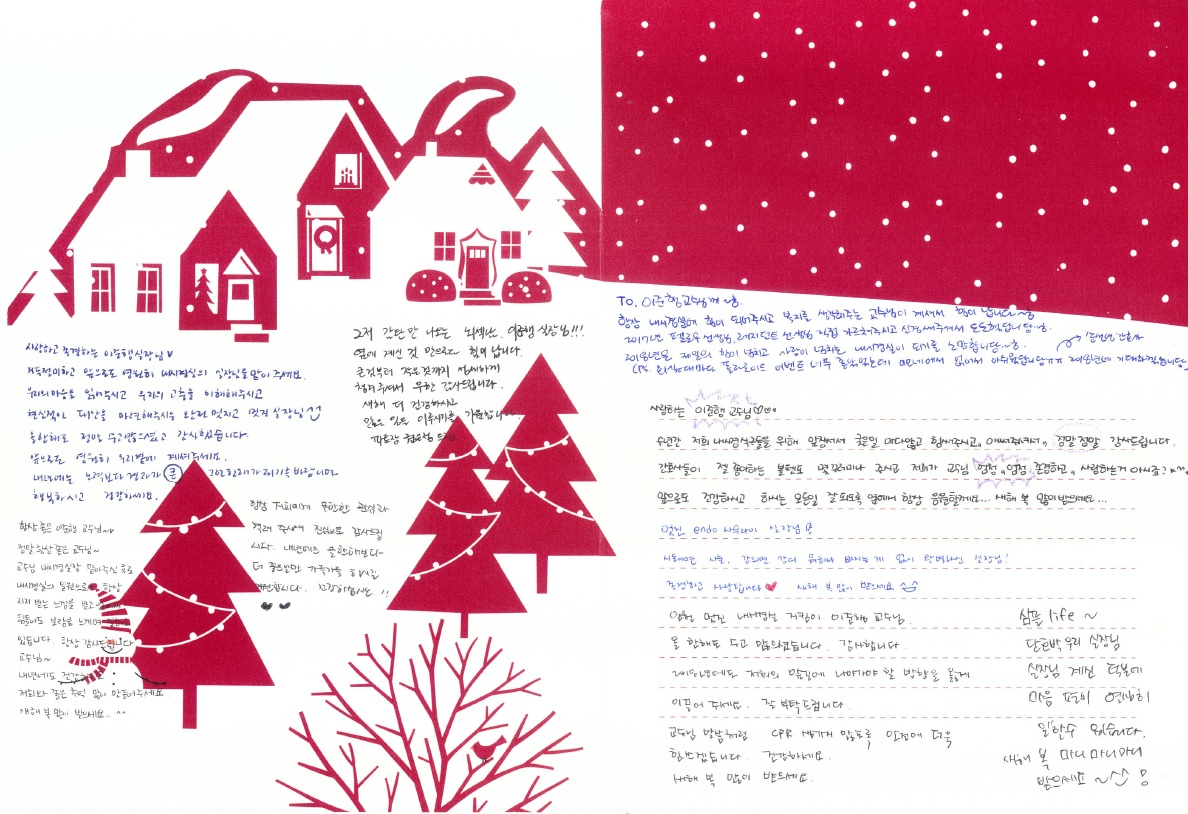 사랑하고 존경하는 이준행 실장님 ♥
앞으로도 영원히 내시경실의 실장님을 맡아 주세요.
우리의 마음도 읽어주시고 우리의 고충을 이해해주시고
현실적인 대안을 마련해주시는 완전 멋지고 멋진 실장님
올 한해도 정말 수고많으셨고 감사했습니다.
앞으로도 영원히 우리곁에 계셔주세요.
내년에는 노력보다 결과가 큰 그런한해가 되기를 바랍니다
행복하시고 건강하세요.
그저 간단만 나오는 뇌섹남 이준행 실장님!!!
옆에 계신 것 만으로도 힘이 납니다.
큰것부터 작은것까지 세세하게
챙겨주셔서 무한 감사드립니다.
새해 더 건강하시고
항상 저희에게 무한한 관심과
격려 주셔서 진심으로 감사드립
니다. 내년에도 올한해보다
더 건강하십시오!!
항상 좋은 이준행 교수님~♡
정말 항상 좋은 교수님~
교수님 내시경실장 맡아주신 후로
내시경실의 일원으로 항상
지지 받는 느낌을 받고
힘듦에도 보람을 느끼며
있습니다 항상 감사드립니다
교수님~
내년에도 건강하시고
저희와 좋은 추억 많이 만들어주세요
새해 복 많이 받으세요.. ^^
TO. 이준행교수님께 ~
항상 내시경실에 힘이 되어주시고 복지를 생각해주는 교수님이 계셔서 힘이 납니다~
2017년 펠로우 선생님, 레지던트 선생님 직접 가르쳐주시고 신경써주셔서 든든했답니다~
2018년은 제일의 힘이 넘치고 사랑이 넘치는 내시경실이 되기를 소망합니다~
(PS. 회식때마다 폴라로이드 이벤트 너무 좋았었는데 이번에서 없어서 아쉬웠답니다ㅠㅠ 2018년에 기대하겠습니다)
사랑하는 이준행 교수님♡♡..
수년간 저희 내시경식구들을 위해 앞장서서 궂은일 마다않고 힘써주시고, 아껴주셔서, 정말정말 감사드립니다.
간호사들이 잘 좋아하는 볼펜도 몇 꾸러미나 주시고 저희가 교수님 엄청, 엄청 존경하고, 사랑하는거 아시죠?
앞으로도 건강하시고 하시는 모든일 잘 되도록 옆에서 항상 응원할게요... 새해 복 많이받으세요...
멋진 endo 사무라이 실장님
존경하고 사랑합니다 ♥ 새해 복 많이 받으세요
영원 멋진 내시경실 거장이 이준행 교수님.
올 한해도 수고 많으셨습니다. 감사합니다.
2018년에도 저희의 앞길에 나아가야 할 방향을 옳게
이끌어 주세요. 잘 부탁드립니다.
교수님 말씀처럼 CPR 생기지 않도록 안전에 더욱
힘쓰겠습니다. 건강하세요.
새해 복 많이 받으세요.
심플 life ~
단호박 우리 실장님
실장님 계신 덕분에
마음 편히 열심히
일할수 있습니다.
새해 복 마니마니마니
받으세요~